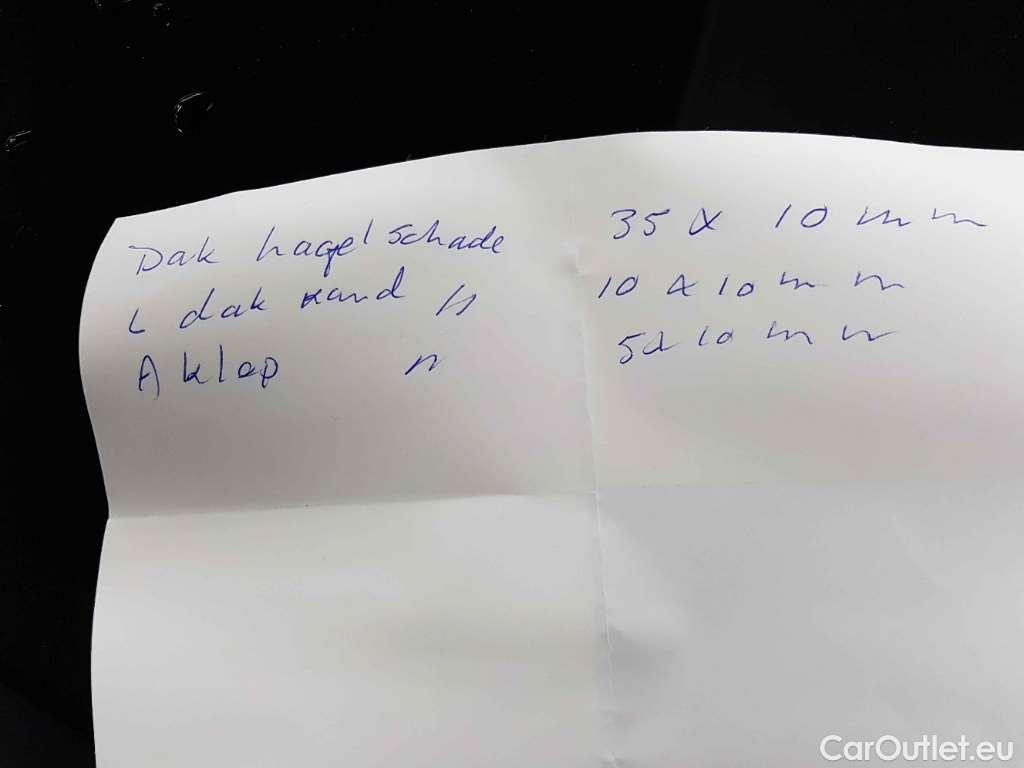 Dak hagelschade 35 x 10 mm
L dak rand " 10 x 10 mm
A klap " 5x 10 mm
CarOutlet.eu